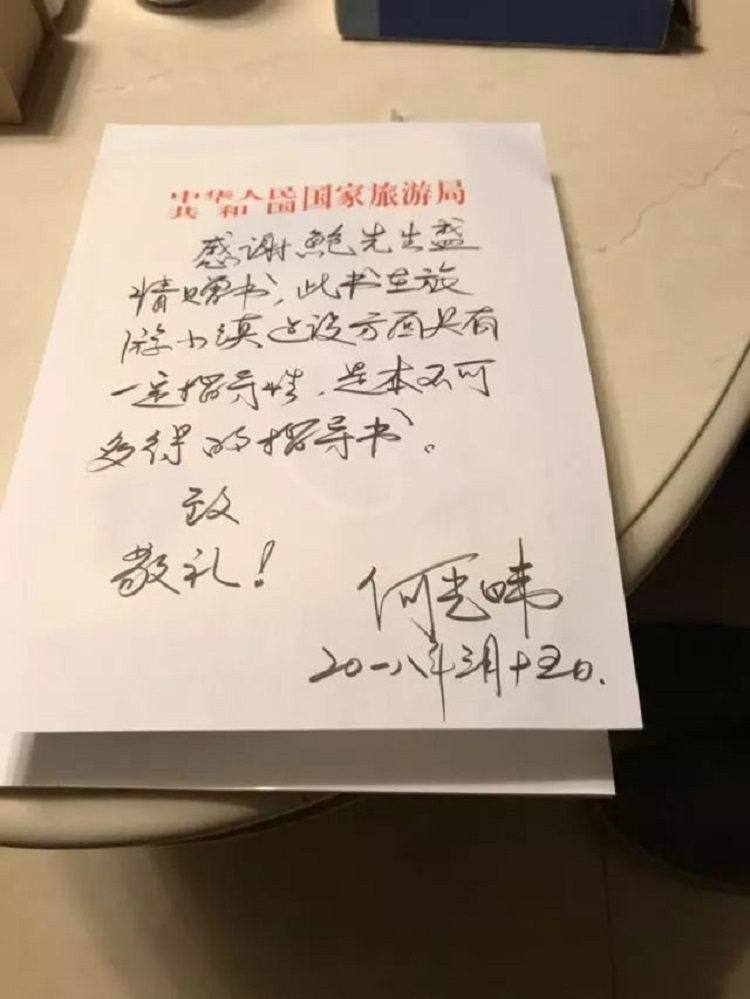 中华人民共和国国家旅游局
感谢鲍先生盛
情赠书，此书在旅
游小镇建设方面具有
一定指导性，是本不可
多得的指导书。
致
敬礼！
何光暐
二〇一八年三月十五日.